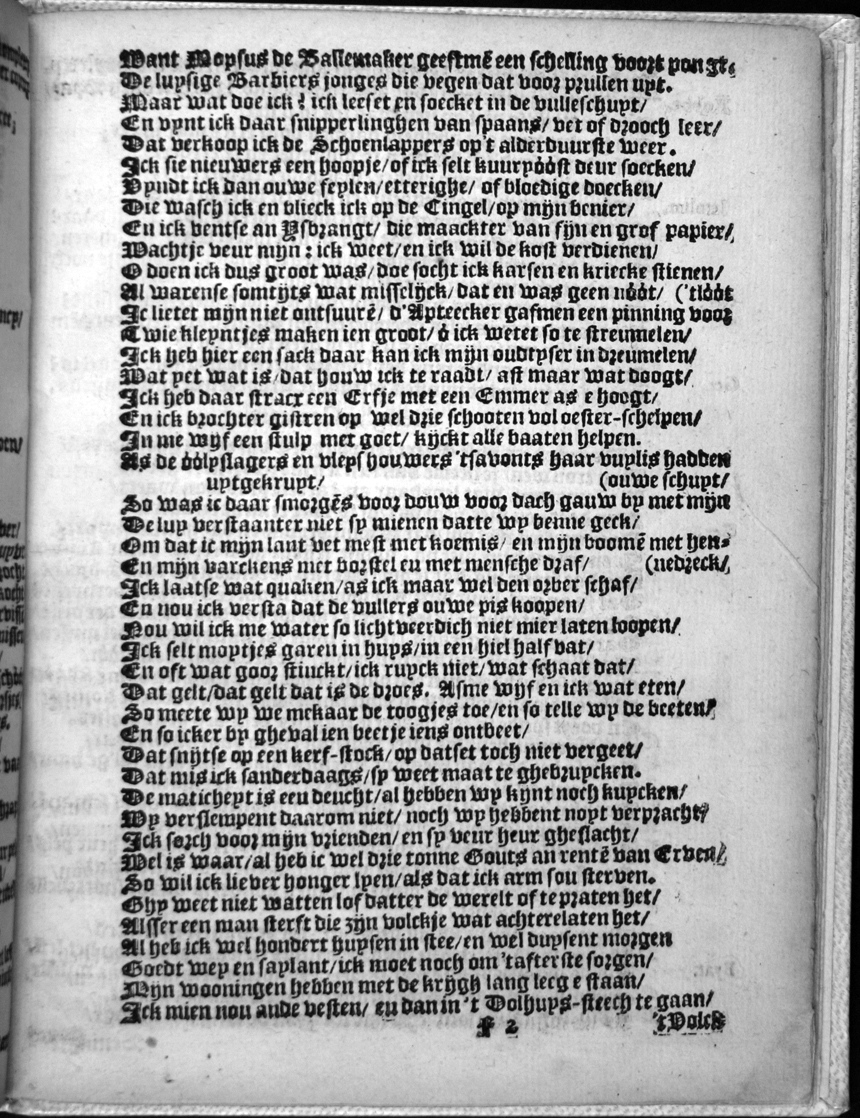 Want Mopsus de Ballemaker geeftmē een schelling voort pongt,
De luysige Barbiers jonges die vegen dat voor prullen uyt.
Maar wat doe ick? ick leeset en soecket in de vulleschuyt/
En vynt ick daar snipperlinghen van spaans/ vet of drooch leer/
Dat verkoop ick de Schoenlappers op't alderduurste weer.
Ick sie nieuwers een hoopje/ of ick selt kuuryóóst deur soecken/
Vyndt ick dan ouwe feylen/ etterighe/ of bloedige doecken/
Die wasch ick en blieck ick op de Cingel/ op mijn benier/
En ick ventse an Ysbrangt/ die maackter van fijn en grof papier/
Wachtje veur mijn: ick weet/ en ick wil de kost verdienen/
O doen ick dus groot was/ doe socht ick karsen en kriecke stienen/
Al warense somtijts wat misselijck/ dat en was geen nóót/ ('tlóót
Ic lietet mijn niet ontsuurē/ d'Apteecker gafmen een pinning voor
Twie kleyntjes maken ien groot/ ó ick wetet so te streumelen/
Ick heb hier een sack daar kan ick mijn oudtyser in dreumelen/
Wat yet wat is/ dat houw ick te raadt/ ast maar wat doogt/
Ick heb daar stracx een Erfje met een Emmer as e hoogt/
En ick brochter gistren op wel drie schooten vol oester-schelpen/
In me wijf een stulp met goet/ kijckt alle baaten helpen.
As de óólyslagers en vleyshouwers 'tsavonts haar vuylis hadden
uytgekruyt/ (ouwe schuyt/
So was ic daar smorgēs voor douw voor dach gauw by met mijn
De luy verstaanter niet sy mienen datte wy benne geck/
Om dat ic mijn lant vet mest met koemis/ en mijn boomē met hen-
En mijn varckens met borstel en met mensche draf/ (nedreck/
Ick laatse wat quaken/ as ick maar wel den orber schaf/
En nou ick versta dat de vullers ouwe pis koopen/
Nou wil ick me water so lichtveerdich niet mier laten loopen/
Ick selt moytjes garen in huys/ in een hiel half vat/
En oft wat goor stinckt/ ick ruyck niet/ wat schaat dat/
Dat gelt/ dat gelt dat is de droes. Asme wijf en ick wat eten/
So meete wy we mekaar de toogjes toe/ en so telle wy de beeten/
En so icker by gheval ien beetje iens ontbeet/
Dat snijtse op een kerf-stock/ op datset toch niet vergeet/
Dat mis ick sanderdaags/ sy weet maat te ghebruycken.
De maticheyt is een deucht/ al hebben wy kynt noch kuycken/
Wy verslempent daarom niet/ noch wy hebbent noyt verpracht/
Ick sorch voor mijn vrienden/ en sy veur heur gheslacht/
Wel is waar/ al heb ic wel drie tonne Gouts an rentē van Erven/
So wil ick liever honger lyen/ als dat ick arm sou sterven.
Ghy weet niet watten lof datter de werelt of te praten het/
Alsser een man sterft die zijn volckje wat achterelaten het/
Al heb ick wel hondert huysen in stee/ en wel duysent morgen
Goedt wey en saylant/ ick moet noch om 'tafterste sorgen/
Mijn wooningen hebben met de krijgh lang leeg e staan/
Ick mien nou ande vesten/ en dan in 't Dolhuys-steech te gaan/
F 2 't Volck